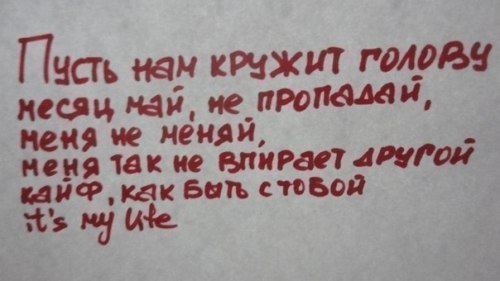 Пусть нам кружит голову
месяц май, не пропадай,
меня не меняй,
меня так не впирает другой
кайф, как быть с тобой
it's my life